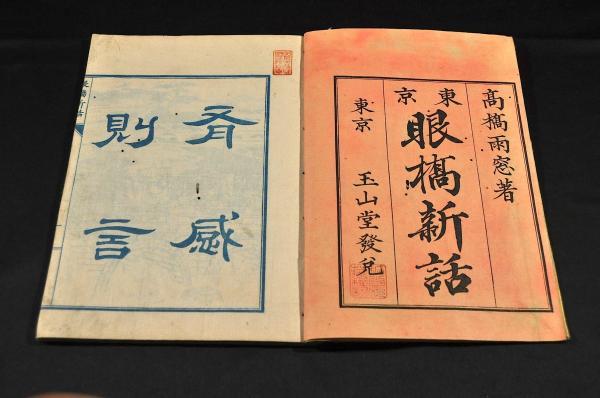 髙橋雨窓著
東京
眼橋新話
東京 玉山堂發兌
有感
則言